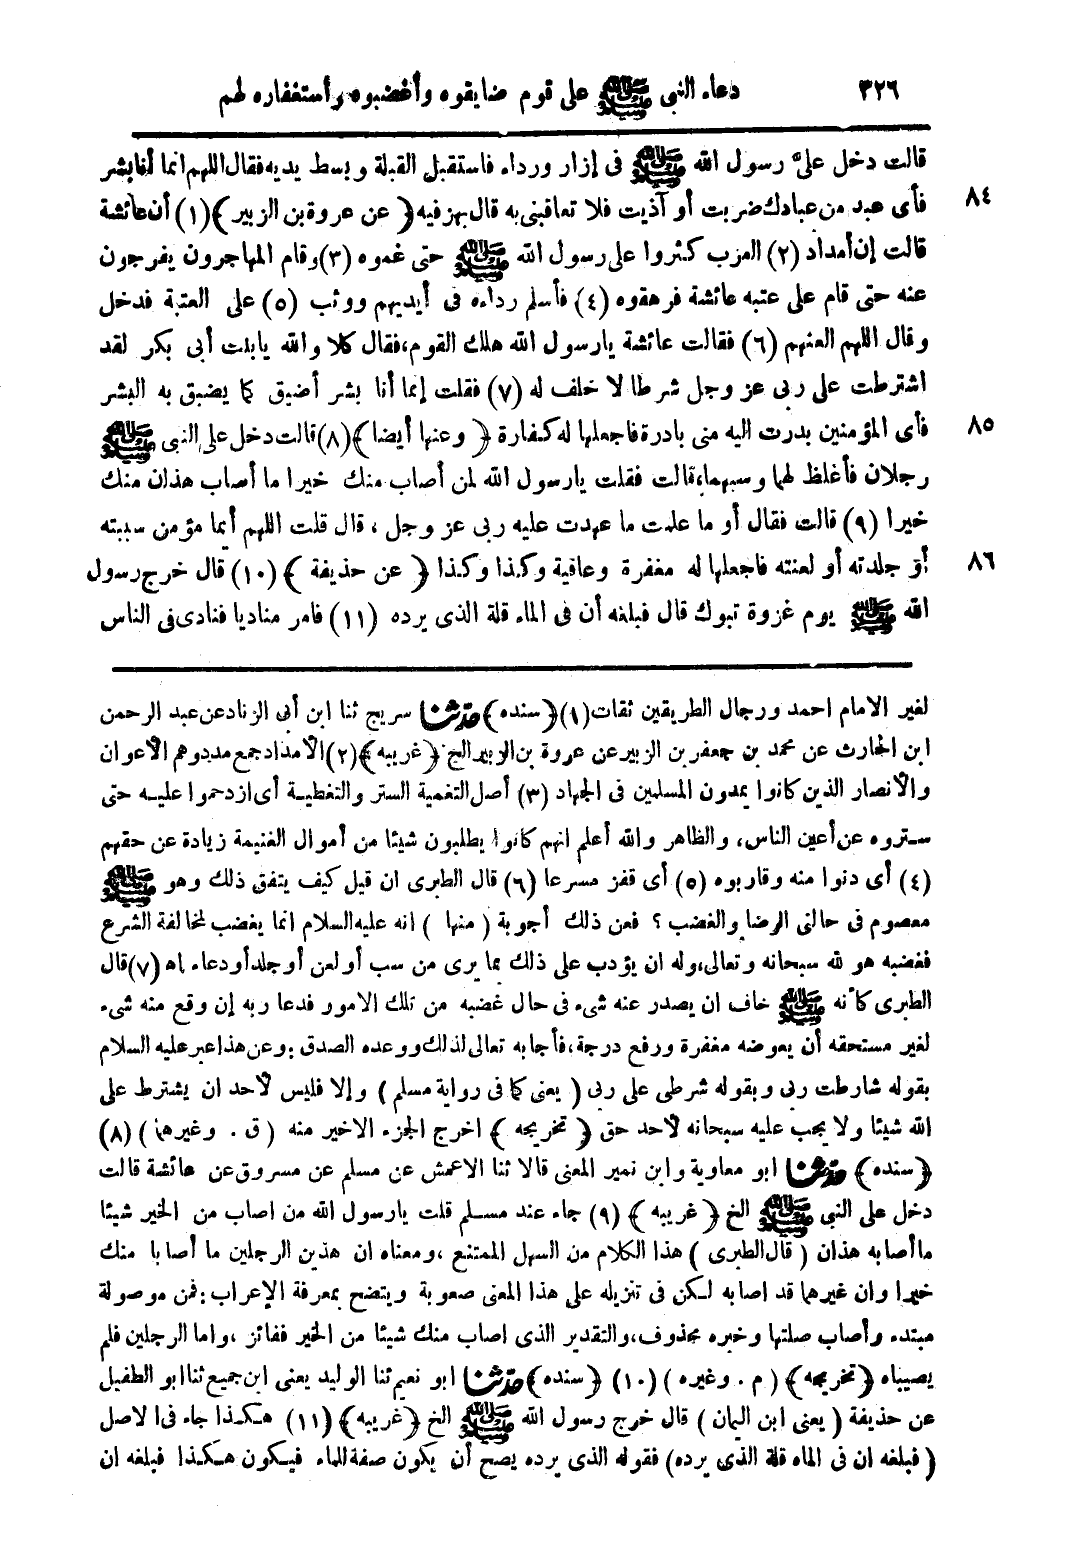 ٣٢٦ دعاء النبي ﷺ على قوم ضايقوه وأغضبوه وأستغفاره لهم
قالت دخل علىَّ رسول الله ﷺ فى إزار ورداء فاستقبل القبلة وبسط يديه فقال اللهم انما أنا بشر
٨٤ فأى عبد من عبادك ضربت أو آذيت فلا تعاقبنى به قال بهز فيه ﴿ عن عروة بن الزبير ﴾ (١) أن عائشة
قالت إن أمداد (٢) العرب كثروا على رسول الله ﷺ حتى غموه (٣) وقام المهاجرون يفرجون
عنه حتى قام على عتبة عائشة فرهقوه (٤) فأسلم رداءه فى أيديهم ووثب (٥) على العتبة فدخل
وقال اللهم العنهم (٦) فقالت عائشة يارسول الله هلك القوم، فقال كلا والله يابنت أبى بكر لقد
اشترطت على ربى عز وجل شرطا لا خلف له (٧) فقلت إنما أنا بشر أضيق كما يضيق به البشر
٨٥ فأى المؤمنين بدرت اليه منى بادرة فاجعلها له كفارة ﴿ وعنها أيضا ﴾ (٨) قالت دخل على النبى ﷺ
رجلان فأغلظ لهما وسبهما، قالت فقلت يارسول الله لمن أصاب منك خيرا ما أصاب هذان منك
خيرا (٩) قالت فقال أو ما علمت ما عهدت عليه ربى عز وجل، قال قلت اللهم أيما مؤمن سببته
٨٦ أو جلدته أو لعنته فاجعلها له مغفرة وعافية وكذا وكذا ﴿ عن حذيفة ﴾ (١٠) قال خرج رسول
الله ﷺ يوم غزوة تبوك قال فبلغه أن فى الماء قلة الذى يرده (١١) فامر مناديا فنادى فى الناس
لغير الامام احمد ورجال الطريقين ثقات (١) ﴿ سنده ﴾ حدثنا سريج ثنا ابن أبى الزناد عن عبد الرحمن
ابن الحارث عن محمد بن جعفر بن الزبير عن عروة بن الزبير الخ ﴿ غريبه ﴾ (٢) الأمداد جمع مدد وهم الأعوان
والأنصار الذين كانوا يمدون المسلمين فى الجهاد (٣) أصل التغمية الستر والتغطية أى ازدحموا عليه حتى
ستروه عن أعين الناس، والظاهر والله أعلم انهم كانوا يطلبون شيئا من أموال الغنيمة زيادة عن حقهم
(٤) أى دنوا منه وقاربوه (٥) أى قفز مسرعا (٦) قال الطبرى ان قيل كيف يتفق ذلك وهو ﷺ
معصوم فى حالتى الرضا والغضب ؟ فعن ذلك أجوبة ( منها ) انه عليه السلام انما يغضب لمخالفة الشرع
فغضبه هو لله سبحانه وتعالى، وله ان يؤدب على ذلك بما يرى من سب أو لعن أو جلد أو دعاء اه (٧) قال
الطبرى كأنه ﷺ خاف ان يصدر عنه شىء فى حال غضبه من تلك الامور فدعا ربه إن وقع منه شىء
لغير مستحقه أن يعوضه مغفرة ورفع درجة، فأجابه تعالى لذلك ووعده الصدق : وعن هذا عبر عليه السلام
بقوله شارطت ربى وبقوله شرطى على ربى ( يعنى كما فى رواية مسلم ) وإلا فليس لأحد ان يشترط على
الله شيئا ولا يجب عليه سبحانه لأحد حق ﴿ تخريجه ﴾ اخرج الجزء الاخير منه ( ق . وغيرهما ) (٨)
﴿ سنده ﴾ حدثنا ابو معاوية وابن نمير المعنى قالا ثنا الاعمش عن مسلم عن مسروق عن عائشة قالت
دخل على النبى ﷺ الخ ﴿ غريبه ﴾ (٩) جاء عند مسلم قلت يارسول الله من اصاب من الخير شيئا
ما أصابه هذان ( قال الطبرى ) هذا الكلام من السهل الممتنع، ومعناه ان هذين الرجلين ما أصابا منك
خيرا وان غيرهما قد اصابه لكن فى تنزيله على هذا المعنى صعوبة ويتضح بمعرفة الإعراب : فمن موصولة
مبتدء وأصاب صلتها وخبره محذوف، والتقدير الذى اصاب منك شيئا من الخير ففائز، واما الرجلين فلم
يصيباه ﴿ تخريجه ﴾ ( م . وغيره ) (١٠) ﴿ سنده ﴾ حدثنا ابو نعيم ثنا الوليد يعنى ابن جميع ثنا ابو الطفيل
عن حذيفة ( يعنى ابن اليمان ) قال خرج رسول الله ﷺ الخ ﴿ غريبه ﴾ (١١) هكذا جاء فى الاصل
( فبلغه ان فى الماء قلة الذى يرده ) فقوله الذى يرده يصح أن يكون صفة للماء فيكون هكذا فبلغه ان